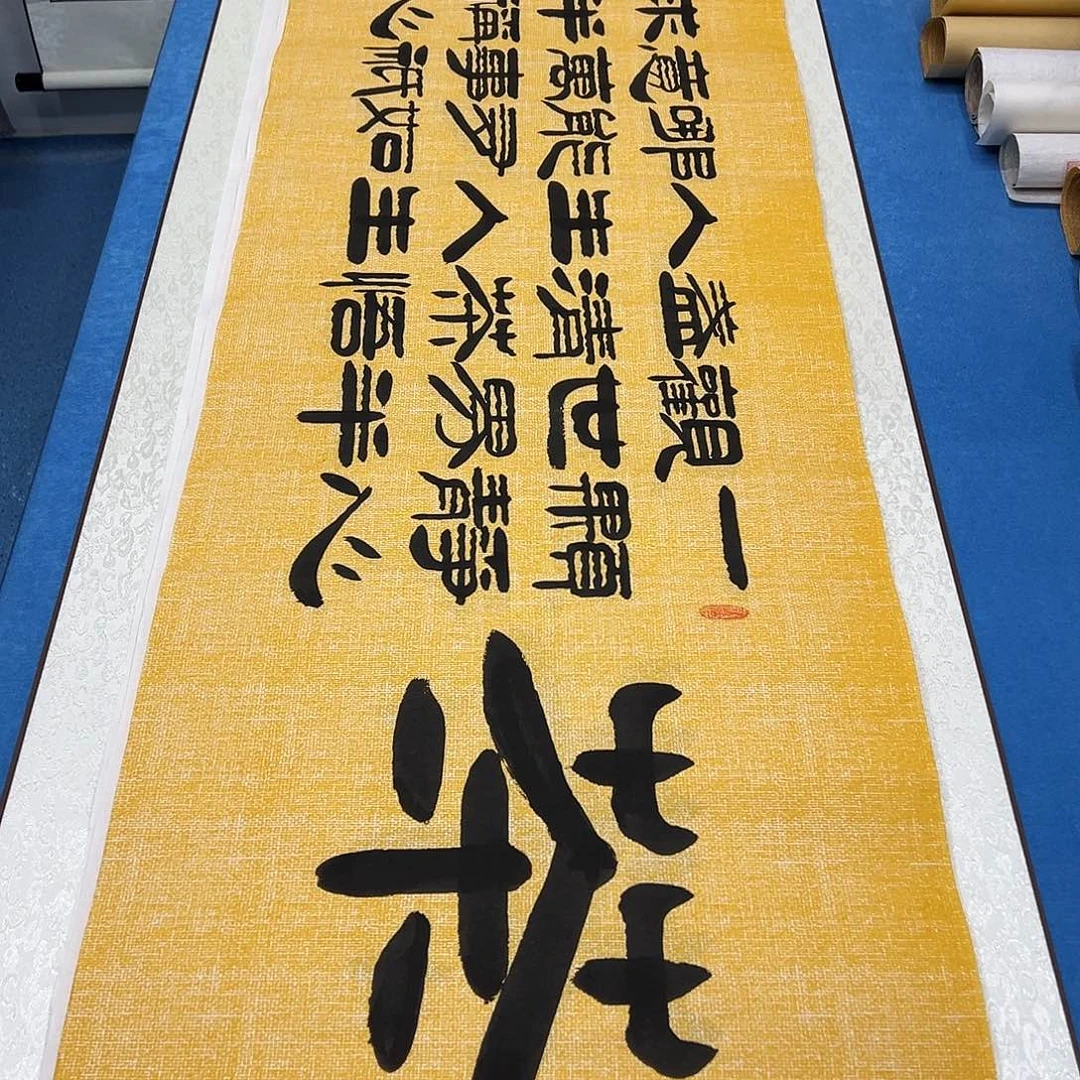 茶
一顆靜心
觀世界半
盞清茶悟
人生人生
哪能多如
意萬事祇
求半稱心